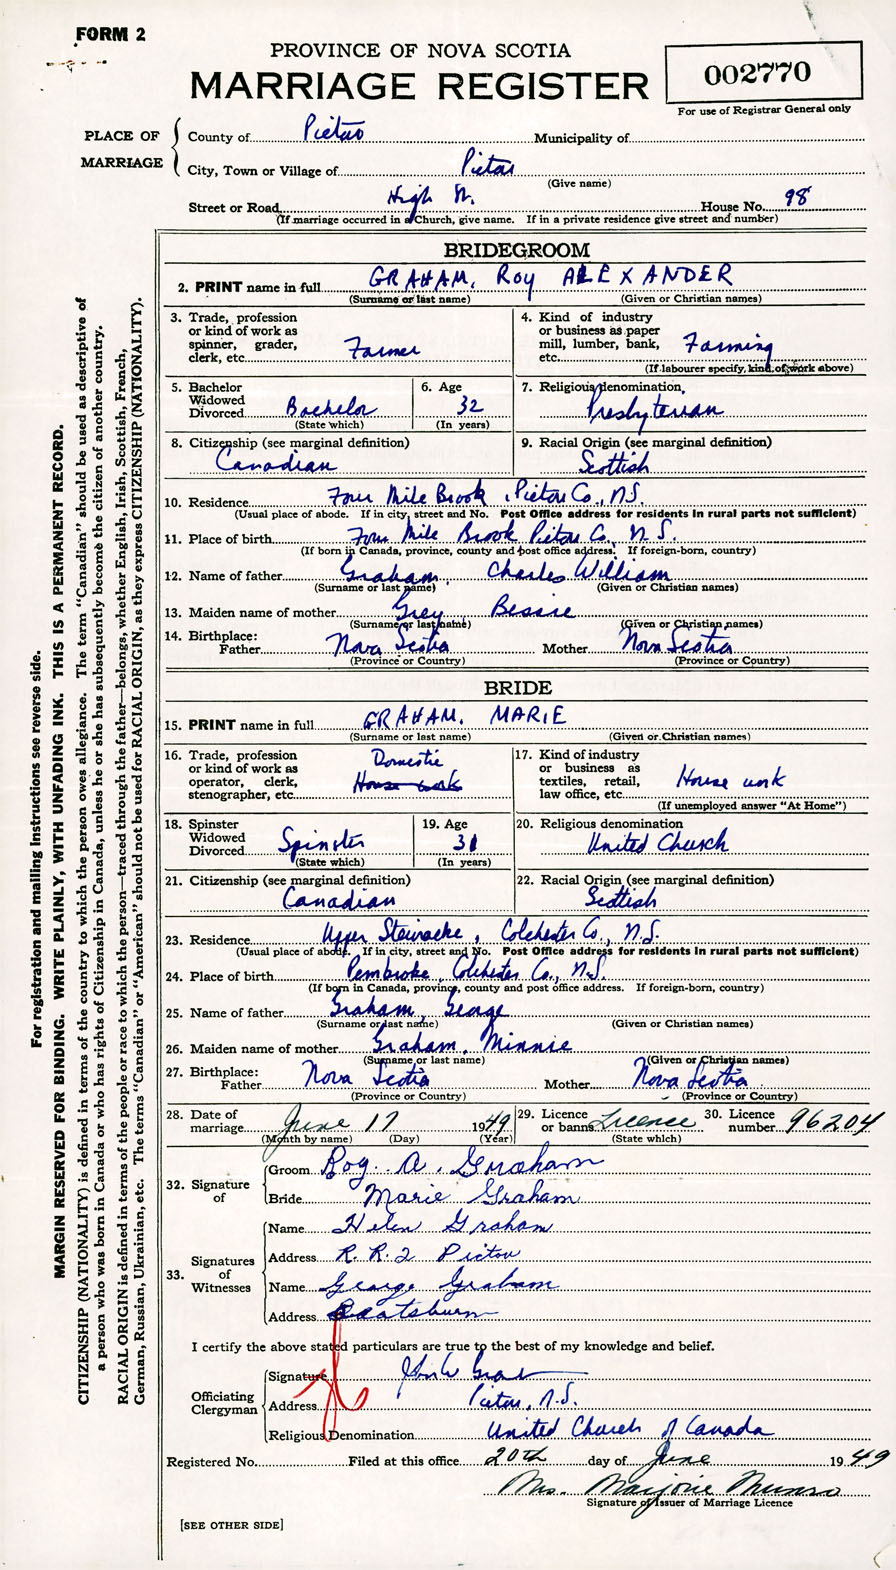 FORM 2
PROVINCE OF NOVA SCOTIA
MARRIAGE REGISTER
002770
For use of Registrar General only
PLACE OF MARRIAGE
County of Pictou Municipality of
City, Town or Village of Pictou
(Give name)
Street or Road High St. House No. 98
(If marriage occurred in a Church, give name. If in a private residence give street and number)
BRIDEGROOM
2. PRINT name in full GRAHAM, ROY ALEXANDER
(Surname or last name) (Given or Christian names)
3. Trade, profession or kind of work as spinner, grader, clerk, etc. Farmer
4. Kind of industry or business as paper mill, lumber, bank, etc. Farming
(If labourer specify, kind of work above)
5. Bachelor Widowed Divorced Bachelor
(State which)
6. Age 32
(In years)
7. Religious denomination, Presbyterian
8. Citizenship (see marginal definition) Canadian
9. Racial Origin (see marginal definition) Scottish
10. Residence Four Mile Brook, Pictou Co., N.S.
(Usual place of abode. If in city, street and No. Post Office address for residents in rural parts not sufficient)
11. Place of birth Four Mile Brook Pictou Co., N.S.
(If born in Canada, province, county and post office address. If foreign-born, country)
12. Name of father Graham, Charles William
(Surname or last name) (Given or Christian names)
13. Maiden name of mother Grey, Bessie
(Surname or last name) (Given or Christian names)
14. Birthplace:
Father Nova Scotia Mother Nova Scotia
(Province or Country) (Province or Country)
BRIDE
15. PRINT name in full GRAHAM, MARIE
(Surname or last name) (Given or Christian names)
16. Trade, profession or kind of work as operator, clerk, stenographer, etc. Domestic House work
17. Kind of industry or business as textiles, retail, law office, etc. House work
(If unemployed answer "At Home")
18. Spinster Widowed Divorced Spinster
(State which)
19. Age 31
(In years)
20. Religious denomination United Church
21. Citizenship (see marginal definition) Canadian
22. Racial Origin (see marginal definition) Scottish
23. Residence Upper Stewiacke, Colchester Co., N.S.
(Usual place of abode. If in city, street and No. Post Office address for residents in rural parts not sufficient)
24. Place of birth Pembroke, Colchester Co., N.S.
(If born in Canada, province, county and post office address. If foreign-born, country)
25. Name of father Graham, George
(Surname or last name) (Given or Christian names)
26. Maiden name of mother Graham, Minnie
(Surname or last name) (Given or Christian names)
27. Birthplace:
Father Nova Scotia Mother Nova Scotia
(Province or Country) (Province or Country)
28. Date of marriage June 17 1949
(Month by name) (Day) (Year)
29. Licence or banns Licence
(State which)
30. Licence number 96204
32. Signature of
Groom Roy A. Graham
Bride Marie Graham
33. Signatures of Witnesses
Name Helen Graham
Address R.R.2 Pictou
Name George Graham
Address Scotsburn
I certify the above stated particulars are true to the best of my knowledge and belief.
Officiating Clergyman
Signature
Address Pictou, N.S.
Religious Denomination United Church of Canada
Registered No. Filed at this office 20th day of June 1949
Mrs. Marjorie Munro
Signature of Issuer of Marriage Licence
[SEE OTHER SIDE]
For registration and mailing instructions see reverse side.
MARGIN RESERVED FOR BINDING. WRITE PLAINLY, WITH UNFADING INK. THIS IS A PERMANENT RECORD.
CITIZENSHIP (NATIONALITY) is defined in terms of the country to which the person owes allegiance. The term "Canadian" should be used as descriptive of
a person who was born in Canada or who has rights of Citizenship in Canada, unless he or she has subsequently become the citizen of another country.
RACIAL ORIGIN is defined in terms of the people or race to which the person—traced through the father—belongs, whether English, Irish, Scottish, French,
German, Russian, Ukrainian, etc. The terms "Canadian" or "American" should not be used for RACIAL ORIGIN, as they express CITIZENSHIP (NATIONALITY).